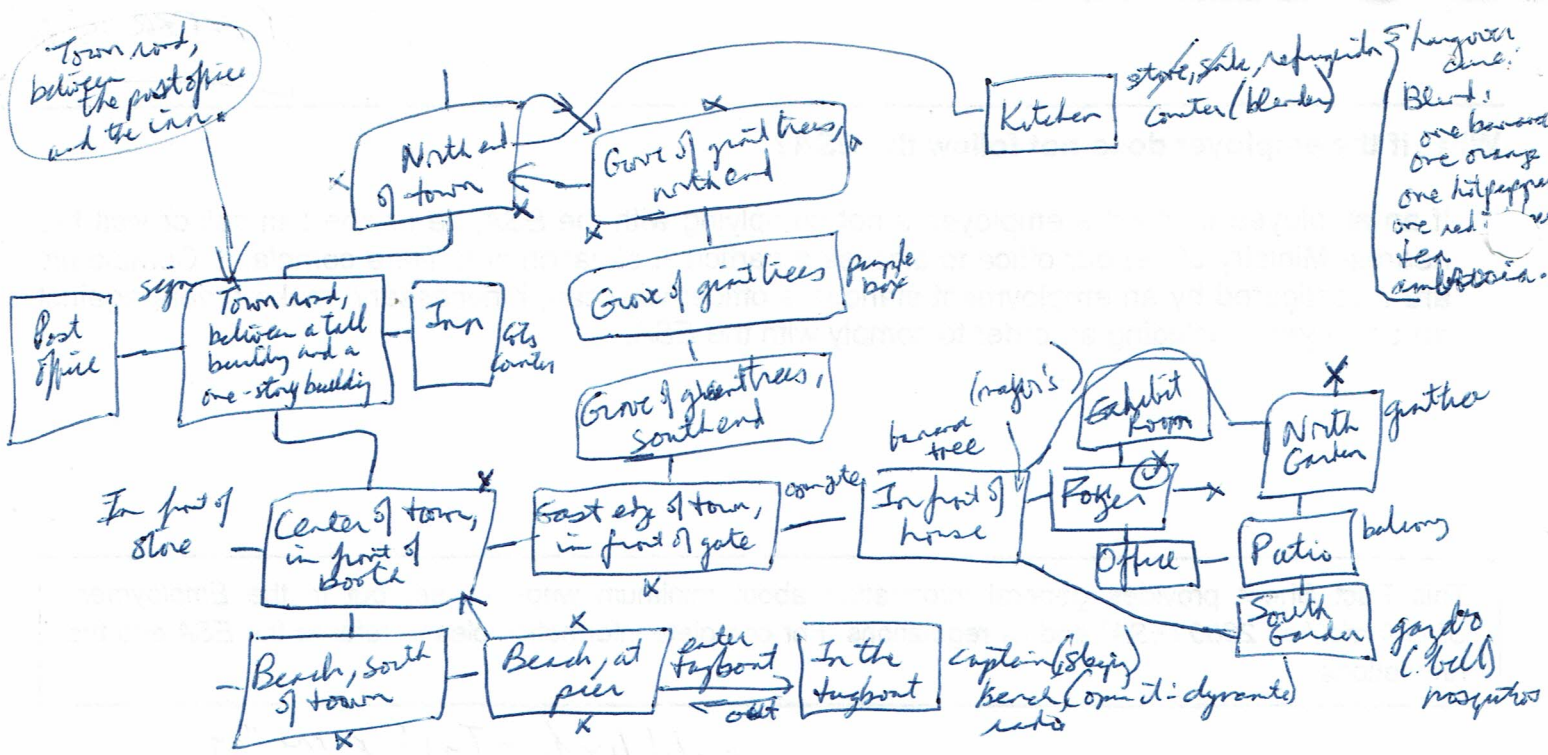 Town road,
between
the post office
and the inn.
North end
of town
Grove of giant trees,
north end
Kitchen
stove, sink, refrigerator
counter (blender)
hangover
cure:
Blend:
one banana
one orange
one hot pepper
one red
ten
ambrosia.
Post
office
sign
Town road,
between a tall
building and a
one-story building
Inn
cots
counter
Grove of giant trees
purple
box
Grove of giant trees,
south end
(mayor's)
banana
tree
Exhibit
Room
North
Garden
In front of
store
Center of town,
in front of
booth
East edge of town,
in front of gate
open gate
In front of
house
Foyer
Office
Patio
balcony
South
Garden
gazebo
(bell)
mosquitos
Beach, south
of town
Beach, at
pier
enter
tugboat
out
In the
tugboat
captain
bench
radio